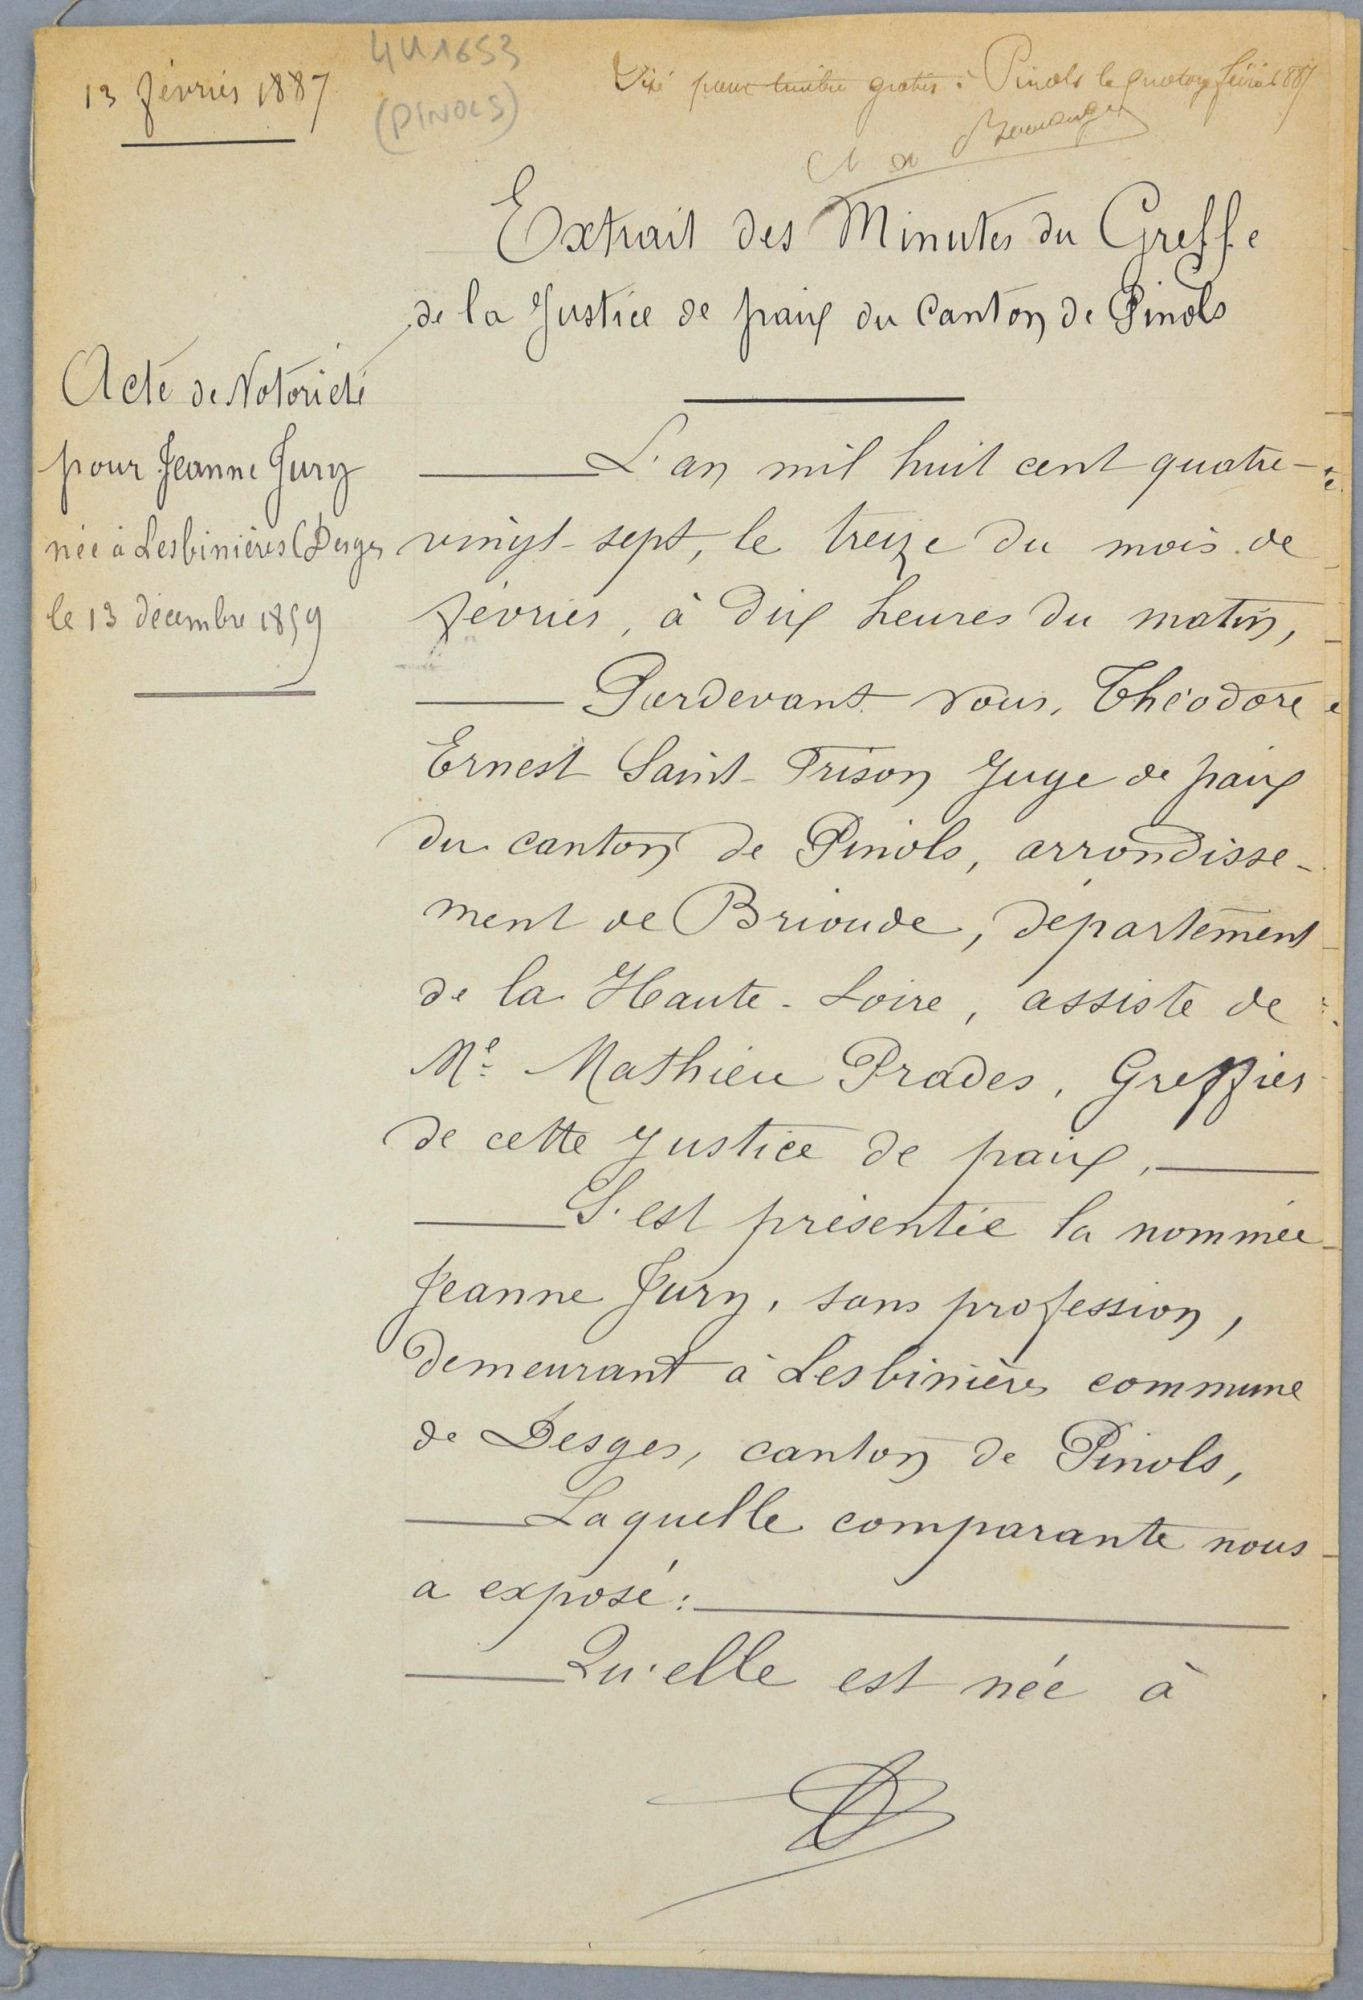 13 février 1887
4U1653
(PINOLS)
Visé pour timbre gratis à Pinols le quatorze février 1887
Extrait des Minutes du Greffe
de la Justice de paix du Canton de Pinols
Acte de Notoriété
pour Jeanne Jury
née à Lesbinières (Desges
le 13 décembre 1859
L'an mil huit cent quatre-
vingt-sept, le treize du mois de
février, à dix heures du matin,
Pardevant nous, Théodore
Ernest Saint-Prison Juge de paix
du canton de Pinols, arrondisse-
ment de Brioude, département
de la Haute-Loire, assisté de
Me Mathieu Prades, Greffier
de cette Justice de paix,
S'est présentée la nommée
Jeanne Jury, sans profession,
demeurant à Lesbinières commune
de Desges, canton de Pinols,
Laquelle comparante nous
a exposé:
Qu'elle est née à